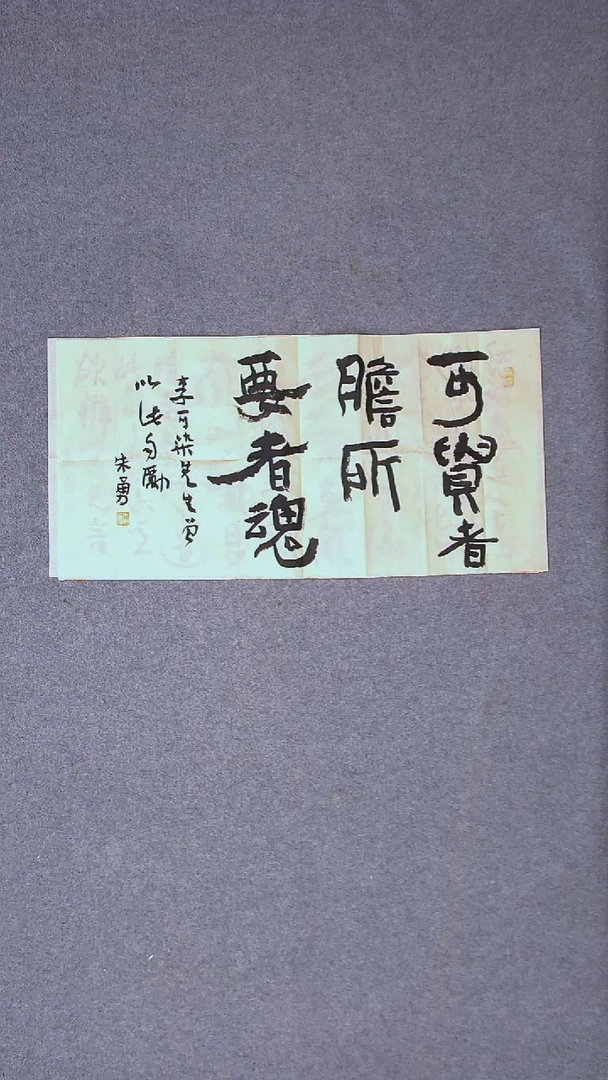 可貴者
膽所
要者魂
李可染先生曾
以此自勵
朱勇